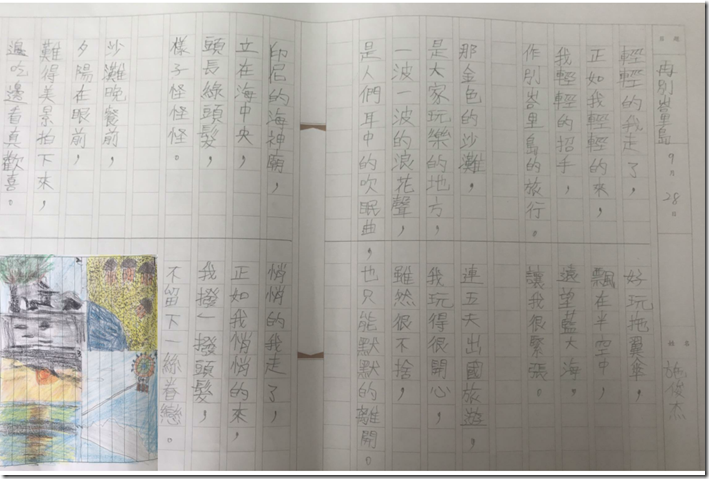 再別峇里島 7月28日
姓名 俊杰
輕輕的我走了，
正如我輕輕的來，
我輕輕的招手，
作別峇里島的旅行。
那金色的沙灘，
是大家玩樂的地方，
一波一波的浪花聲，
是人們耳中的吹眠曲，
印尼的海神廟，
立在海中央，
頭長綠頭髮，
樣子怪怪怪。
沙灘晚餐前，
夕陽在眼前，
難得美景拍下來，
邊吃邊看真歡喜。
好玩拖翼傘，
飄在半空中，
遠望藍大海，
讓我很緊張。
連五天出國旅遊，
我玩得很開心，
雖然很不捨，
也只能默默的離開。
悄悄的我走了，
正如我悄悄的來，
我撥一撥頭髮，
不留下一絲眷戀。